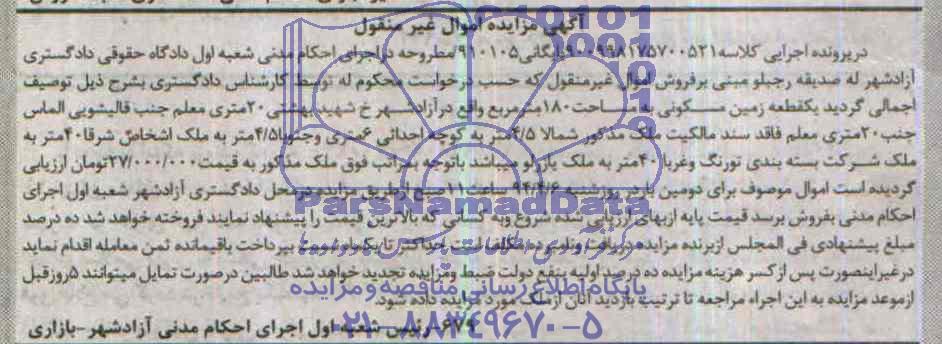 آگهی مزایده اموال غیر منقول
در پرونده اجرایی کلاسه ۹۰۰۹۹۸۱۷۵۷۰۰۵۲۱ بایگانی ۹۱۰۱۰۵ مطروحه در اجرای احکام مدنی شعبه اول دادگاه حقوقی دادگستری
آزادشهر له صدیقه رجبلو مبنی برفروش اموال غیر منقول که حسب درخواست محکوم له توسط کارشناس دادگستری بشرح ذیل توصیف
اجمالی گردید یکقطعه زمین مسکونی به مساحت ۱۸۰ متر مربع واقع در آزادشهر خ شهید بهشتی ۲۰متری معلم جنب قالیشویی الماس
جنب ۲۰متری معلم فاقد سند مالکیت ملک مذکور شمالا ۴/۵ متر به کوچه احداثی ۶متری وجنوبا ۴/۵متر به ملک اشخاص شرقا ۴۰متر به
ملک شرکت بسته بندی تورنگ وغربا ۴۰متر به ملک یازرلو میباشد باتوجه بمراتب فوق ملک مذکور به قیمت ۲۷/۰۰۰/۰۰۰تومان ارزیابی
گردیده است اموال موصوف برای دومین بار در روز شنبه ۹۴/۴/۶ ساعت ۱۱ صبح از طریق مزایده در محل دادگستری آزادشهر شعبه اول اجرای
احکام مدنی بفروش برسد قیمت پایه ازبهای ارزیابی شده شروع وبه کسانی که بالاترین قیمت را پیشنهاد نمایند فروخته خواهد شد ده درصد
مبلغ پیشنهادی فی المجلس ازبرنده مزایده دریافت ونامبرده مکلف است حداکثر تا یکماه نسبت به پرداخت باقیمانده ثمن معامله اقدام نماید
درغیراینصورت پس از کسر هزینه مزایده ده درصد اولیه بنفع دولت ضبط ومزایده تجدید خواهد شد طالبین درصورت تمایل میتوانند ۵روز قبل
ازموعد مزایده به این اجراء مراجعه تا ترتیب بازدید آنان از ملک مورد مزایده داده شود.
۶۷۹- رئیس شعبه اول اجرای احکام مدنی آزادشهر-بازاری
ParsNamadData
پایگاه اطلاع رسانی مناقصه و مزایده
۰۲۱-۸۸۳۴۹۶۷۰-۵